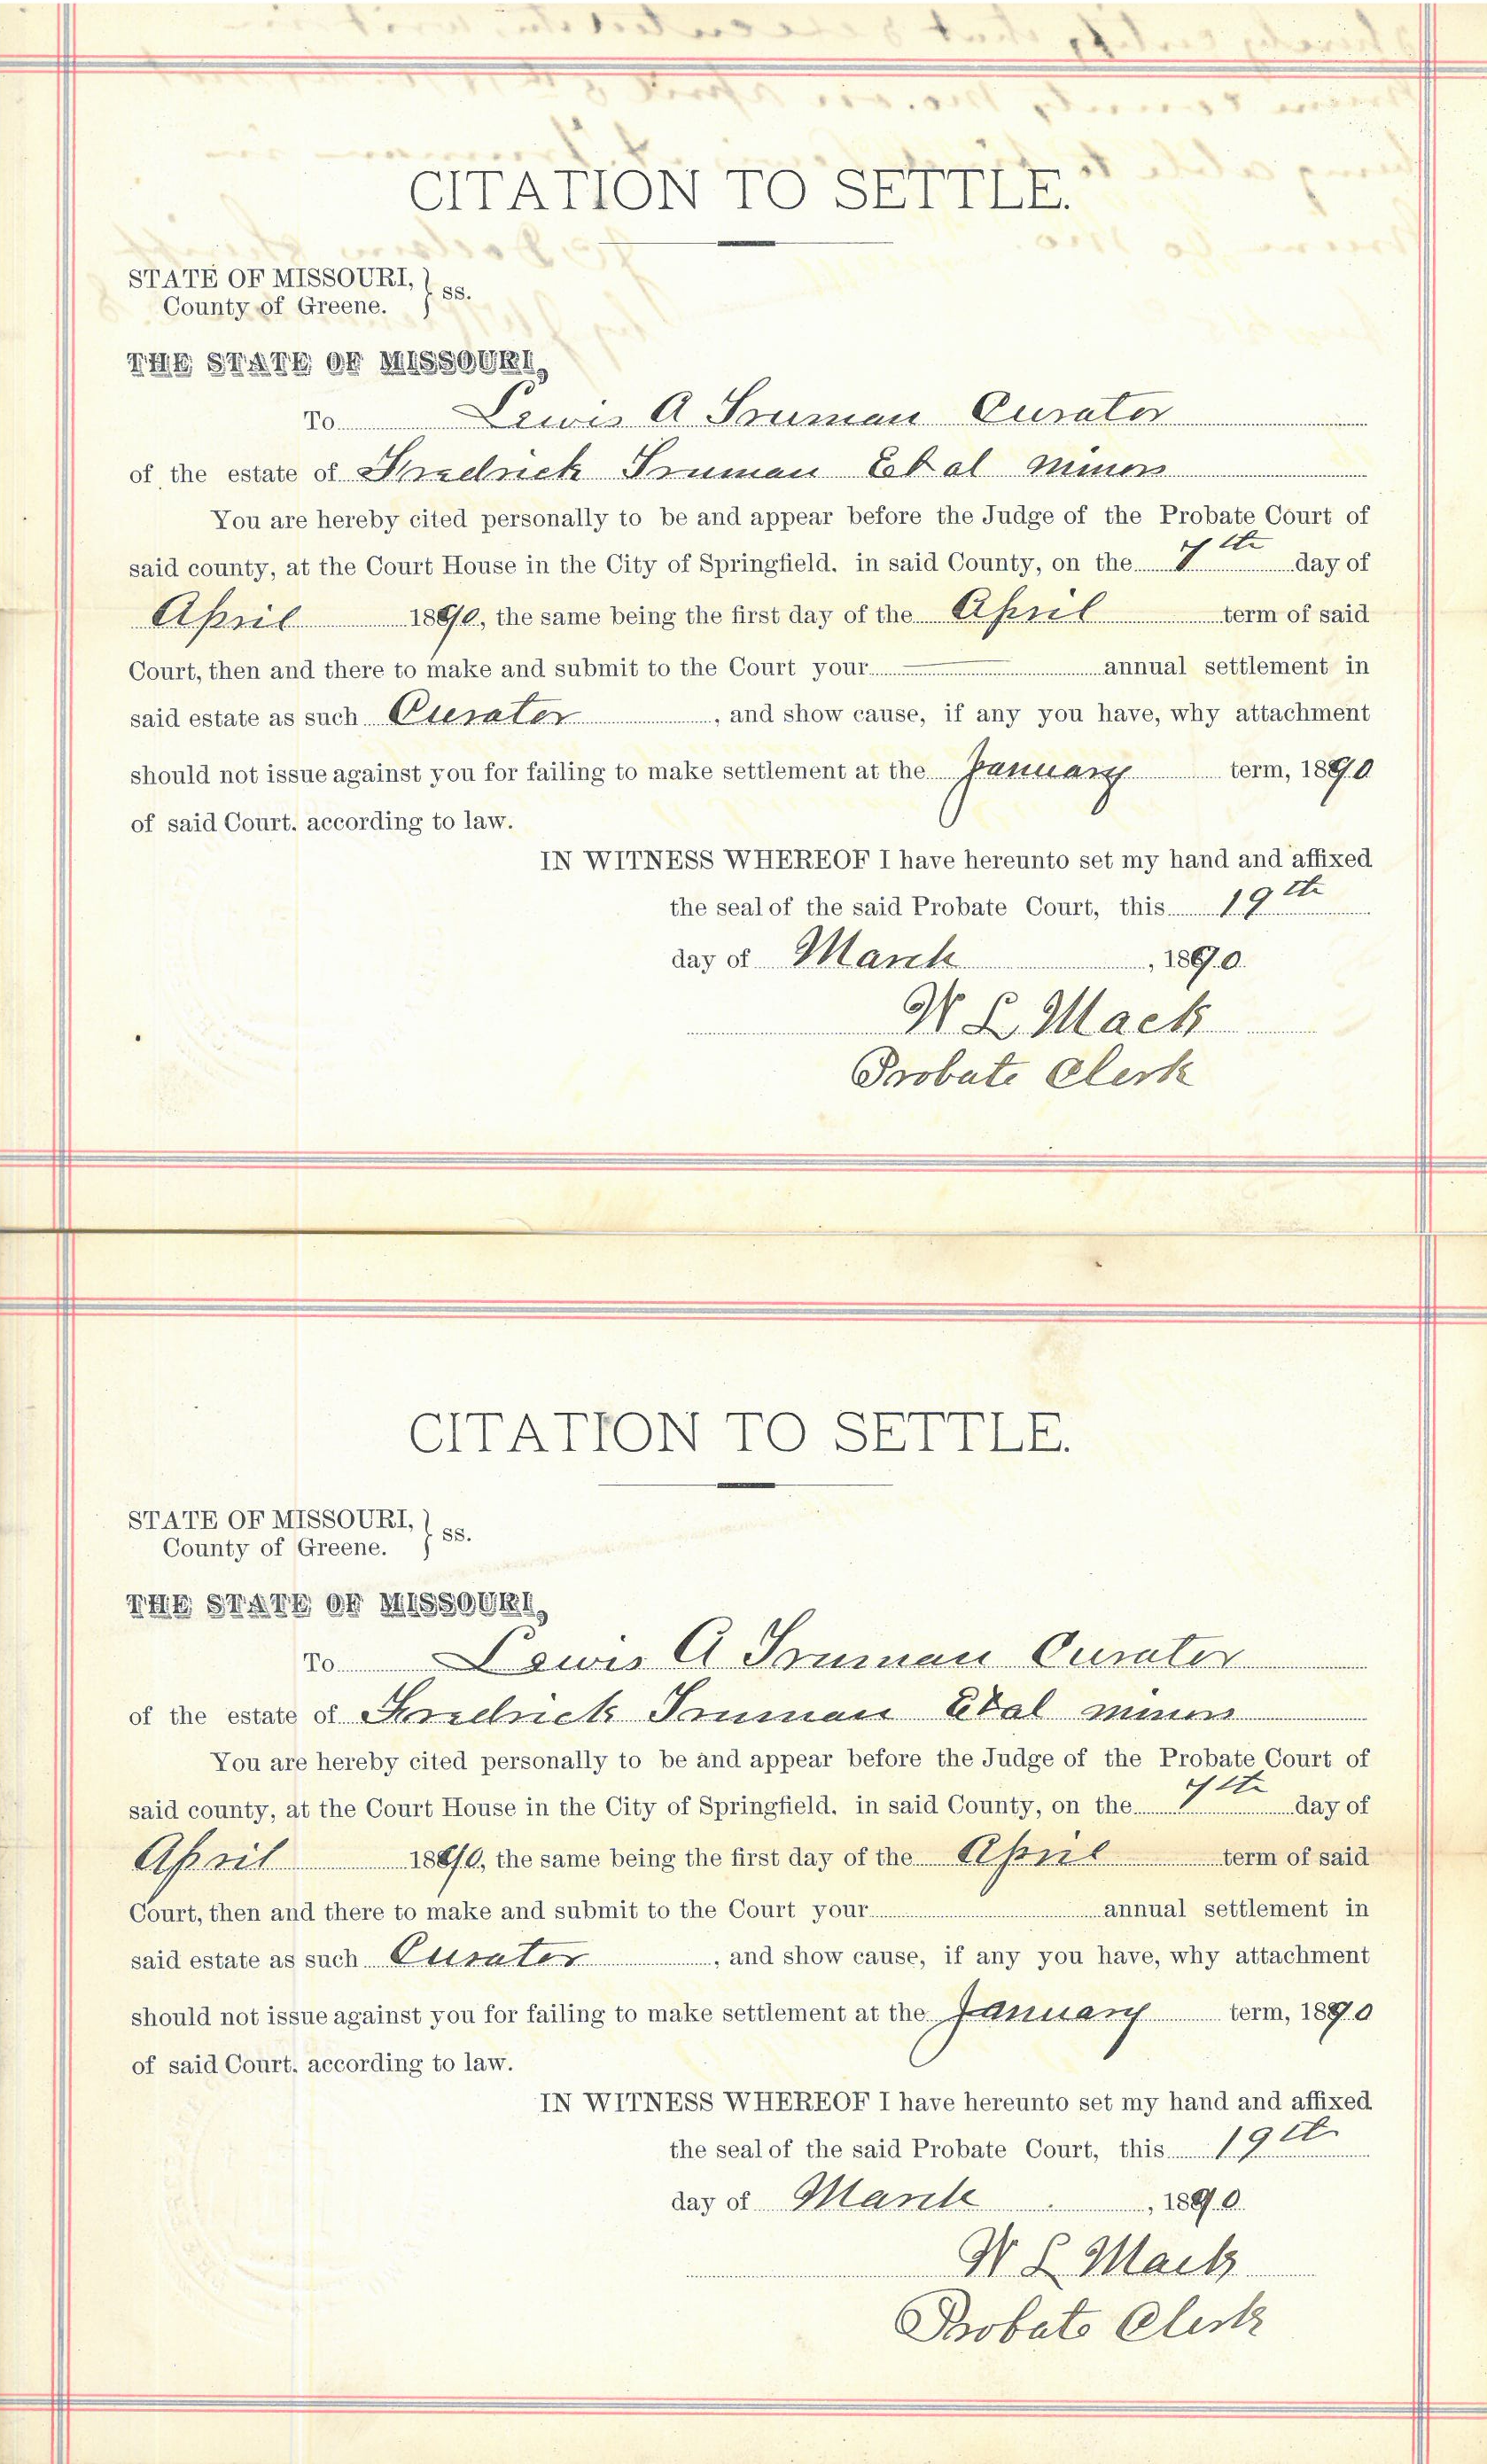 CITATION TO SETTLE.
STATE OF MISSOURI, } ss.
County of Greene.
THE STATE OF MISSOURI,
To Lewis A Truman Curator
of the estate of Fredrick Truman Et al minors
You are hereby cited personally to be and appear before the Judge of the Probate Court of
said county, at the Court House in the City of Springfield, in said County, on the 7th day of
April 1890, the same being the first day of the April term of said
Court, then and there to make and submit to the Court your annual settlement in
said estate as such Curator, and show cause, if any you have, why attachment
should not issue against you for failing to make settlement at the January term, 1890
of said Court, according to law.
IN WITNESS WHEREOF I have hereunto set my hand and affixed
the seal of the said Probate Court, this 19th
day of March, 1890.
W L Mack
Probate Clerk
CITATION TO SETTLE.
STATE OF MISSOURI, } ss.
County of Greene.
THE STATE OF MISSOURI,
To Lewis A Truman Curator
of the estate of Fredrick Truman Et al minors
You are hereby cited personally to be and appear before the Judge of the Probate Court of
said county, at the Court House in the City of Springfield, in said County, on the 7th day of
April 1890, the same being the first day of the April term of said
Court, then and there to make and submit to the Court your annual settlement in
said estate as such Curator, and show cause, if any you have, why attachment
should not issue against you for failing to make settlement at the January term, 1890
of said Court, according to law.
IN WITNESS WHEREOF I have hereunto set my hand and affixed
the seal of the said Probate Court, this 19th
day of March, 1890
W L Mack
Probate Clerk